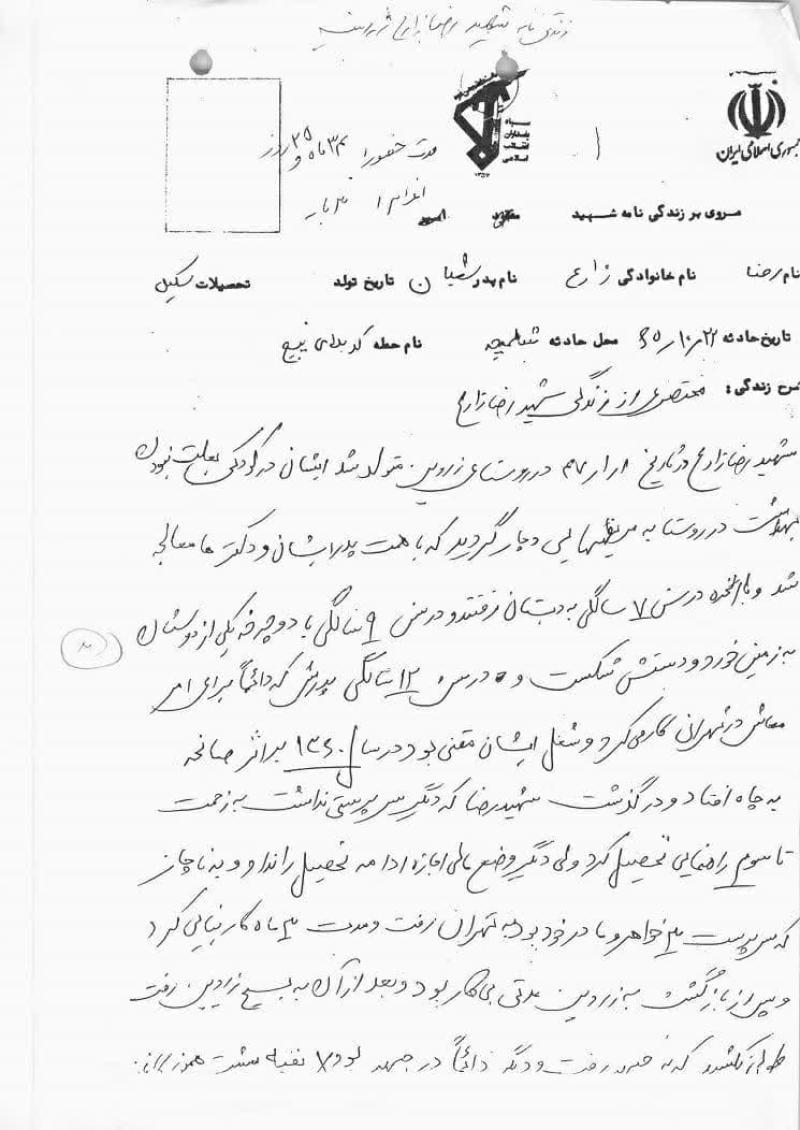 زندگی نامه شهید رضا زارع زروین
جمهوری اسلامی ایران
سپاه پاسداران انقلاب اسلامی
۱
مدت حضور ۳۴ ماه و ۲۵ روز
اعزام ۳ بار
مروری بر زندگی نامه شهید مفقود اسیر
نام رضا نام خانوادگی زارع نام پدر تاریخ تولد تحصیلات سیکل
تاریخ حادثه ۶۵/۱۰/۲۲ محل حادثه شلمچه نام حمله کربلای پنج
شرح زندگی: مختصری از زندگی شهید رضا زارع
شهید رضا زارع در تاریخ در روستای زروین متولد شد ایشان در کودکی بعلت نبودن
بهداشت در روستا به مریضیهایی دچار گردید که با همت پدر ایشان و دکتر ها معالجه
شد و بالاخره در سن ۷ سالگی به دبستان رفتند و در سن ۹ سالگی با دوچرخه یکی از دوستان
به زمین خورد و دستش شکست و در سن ۱۲ سالگی پدرش که دائماً برای امر
معاش در تهران کار می کرد و شغل ایشان مقنی بود در سال ۱۳۶۰ بر اثر صانحه
به چاه افتاد و درگذشت شهید رضا که دیگر سرپرستی نداشت به زحمت
تا سوم راهنمایی تحصیل کرد ولی دیگر وضع مالی اجازه ادامه تحصیل را نداد و به ناچار
که سرپرست ۳ خواهر و مادر خود بود به تهران رفت و مدت ۳ ماه کار بنایی کرد
و پس از بازگشت به زروین مدتی بی کار بود و بعد از آن به بسیج زروین رفت
رفت و دیگر دائماً در جبهه بود